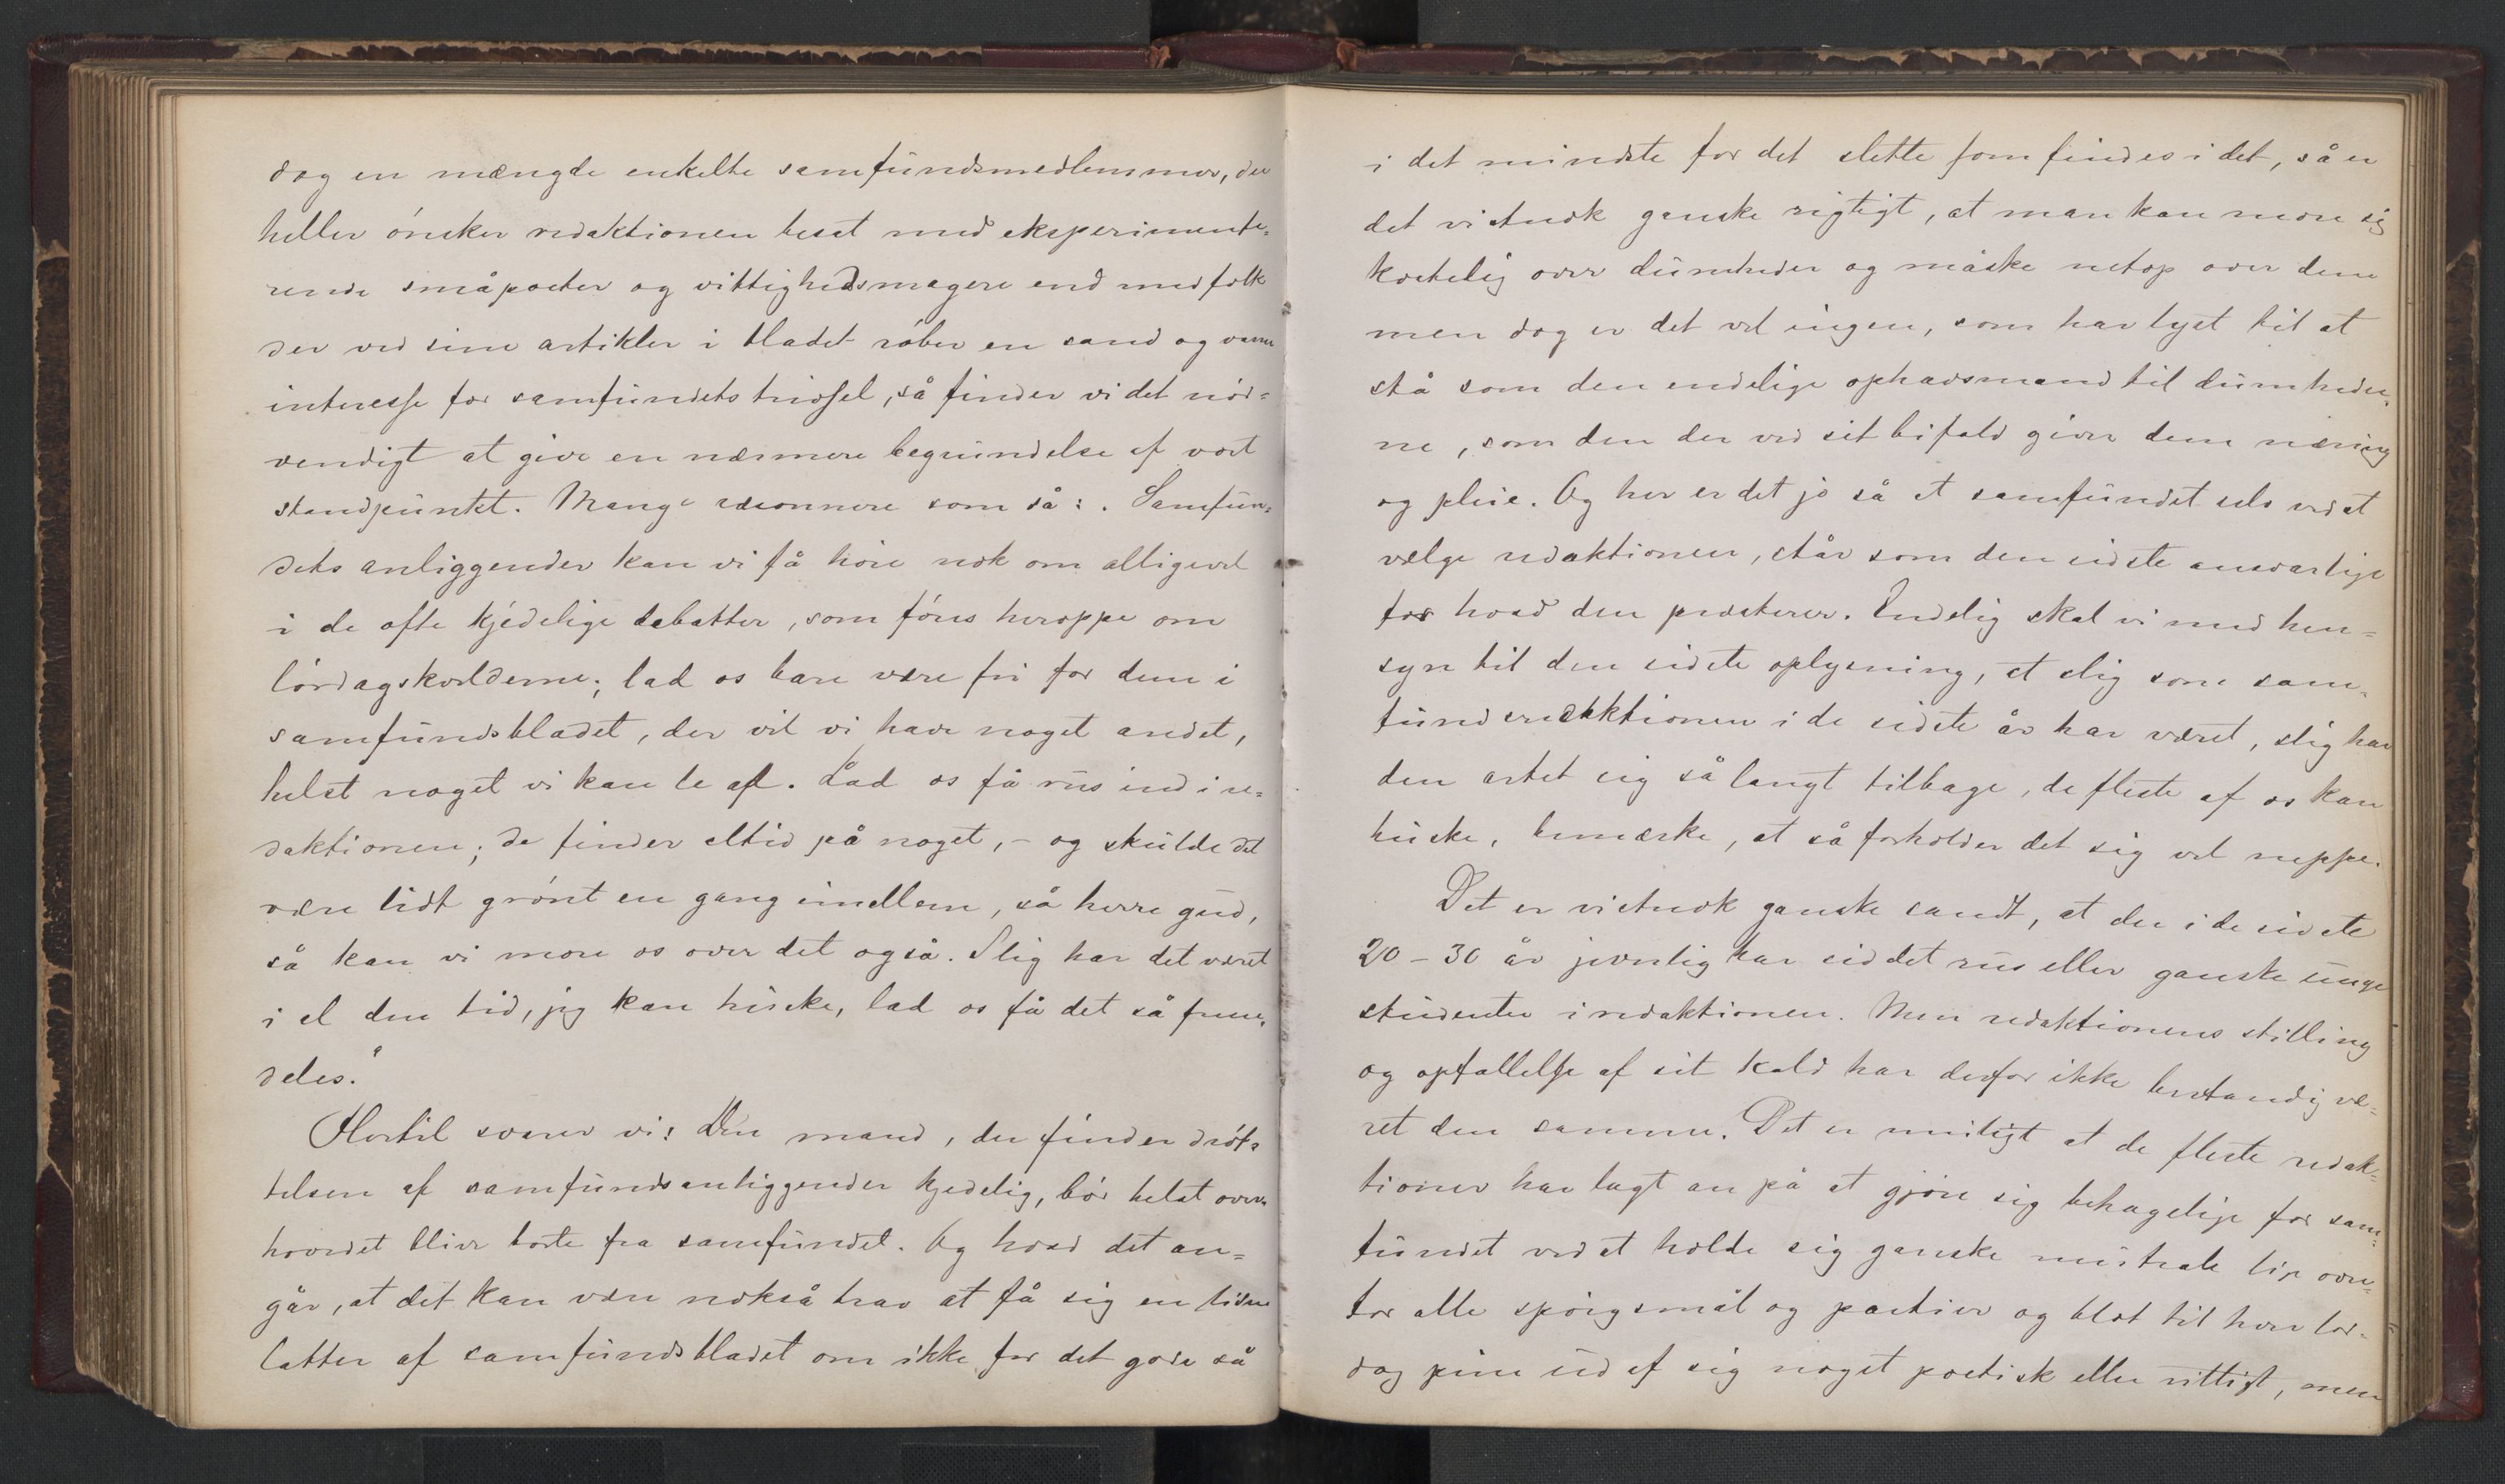 dog en mængde enkelte samfundsmedlemmer, der
heller ønsker redaktionen besat med eksperimente-
rende småpoeter og vittighedsmagere end med folk
der ved sine artikler i bladet røber en sand og varm
interesse for samfundets trivsel, så finder vi det nød-
vendigt at give en nærmere begrundelse af vort
standpunkt. Mange ræsonnere som så: „Samfun-
dets anliggender kan vi få høre nok om alligevel
i de ofte kjedelige debatter, som føres heroppe om
lørdagskvelderne; lad os bare være fri for dem i
samfundsbladet, der vil vi have noget andet,
helst noget vi kan le af. Lad os få rus ind i re-
daktionen; de finder altid på noget, – og skulde det
være lidt grønt en gang imellem, så herre gud,
så kan vi more os over det også. Slig har det været
i al den tid, jeg kan huske, lad os få det så frem-
deles.“
Hertil svarer vi: Den mand, der finder drøf-
telsen af samfundsanliggender kjedelig, bør helst over-
hovedet blive borte fra samfundet. Og hvad det an-
går, at det kan være nokså brav at få sig en liden
latter af samfundsbladet om ikke for det gode så
i det mindste for det slette som findes i det, så er
det vistnok ganske rigtigt, at man kan more sig
kostelig over dumheder og måske netop over dem
men dog er det vel ingen, som har lyst til at
stå som den endelige ophavsmand til dumheder-
ne, som den der ved sit bifald giver dem næring
og pleie. Og her er det jo så at samfundet selv ved at
vælge redaktionen, står som den sidste ansvarlige
for hvad den præsterer. Endelig skal vi med hen-
syn til den sidste oplysning, at slig som sam-
fundsredaktionen i de sidste år har været, slig har
den artet sig så langt tilbage, de fleste af os kan
huske, bemærke, at så forholder det sig vel neppe.
Det er vistnok ganske sandt, at der i de sidste
20 – 30 år jevnlig har siddet rus eller ganske unge
studenter i redaktionen. Men redaktionens stilling
og opfattelse af sit kald har derfor ikke bestandig væ-
ret den samme. Det er muligt at de fleste redak-
tioner har lagt an på at gjøre sig behagelige for sam-
fundet ved at holde sig ganske neutrale lige oven-
for alle spørgsmål og partier og blot til hver lør-
dag pine ud af sig noget poetisk eller vittigt, men